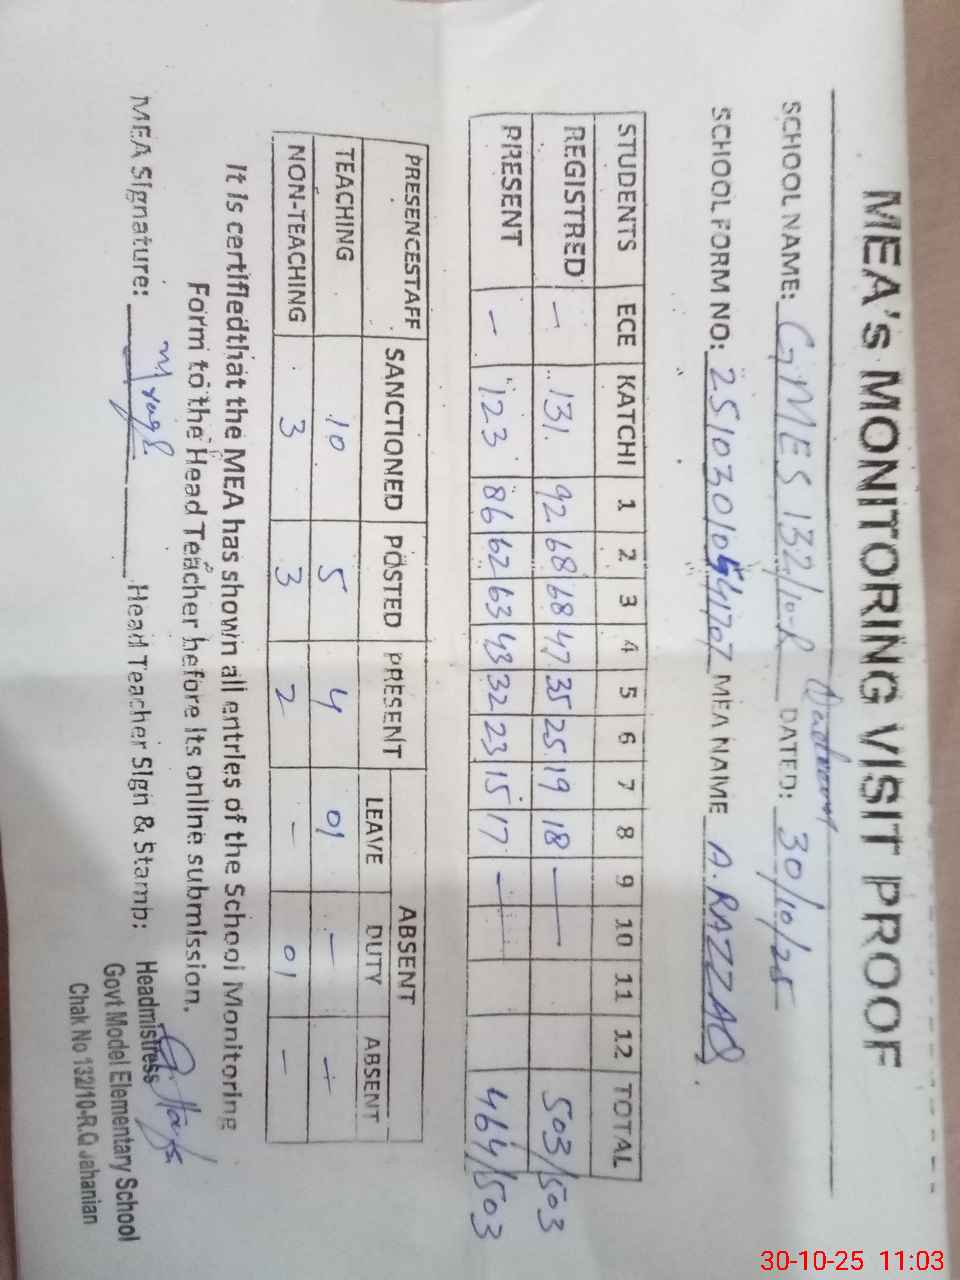 MEA's MONITORING VISIT PROOF
SCHOOL NAME: GMES 132/10-R DATED: 30/10/25
SCHOOL FORM NO: MEA NAME A. RAZZAQ.
STUDENTS ECE KATCHI 1 2 3 4 5 6 7 8 9 10 11 12 TOTAL
REGISTRED - 131. 92 68 68 47 35 25 19 18 — 503/503
PRESENT - 123 86 62 63 43 32 23 15 17 — 464/503
PRESENCESTAFF SANCTIONED POSTED PRESENT ABSENT
LEAVE DUTY ABSENT
TEACHING 10 5 4 01 - -
NON-TEACHING 3 3 2 - 01 -
It is certifiedthat the MEA has shown all entries of the School Monitoring
Form to the Head Teacher before its online submission.
MEA Signature: Head Teacher Sign & Stamb:
Headmistress
Govt Model Elementary School
Chak No 132/10-R.Q Jahanian
30-10-25 11:03